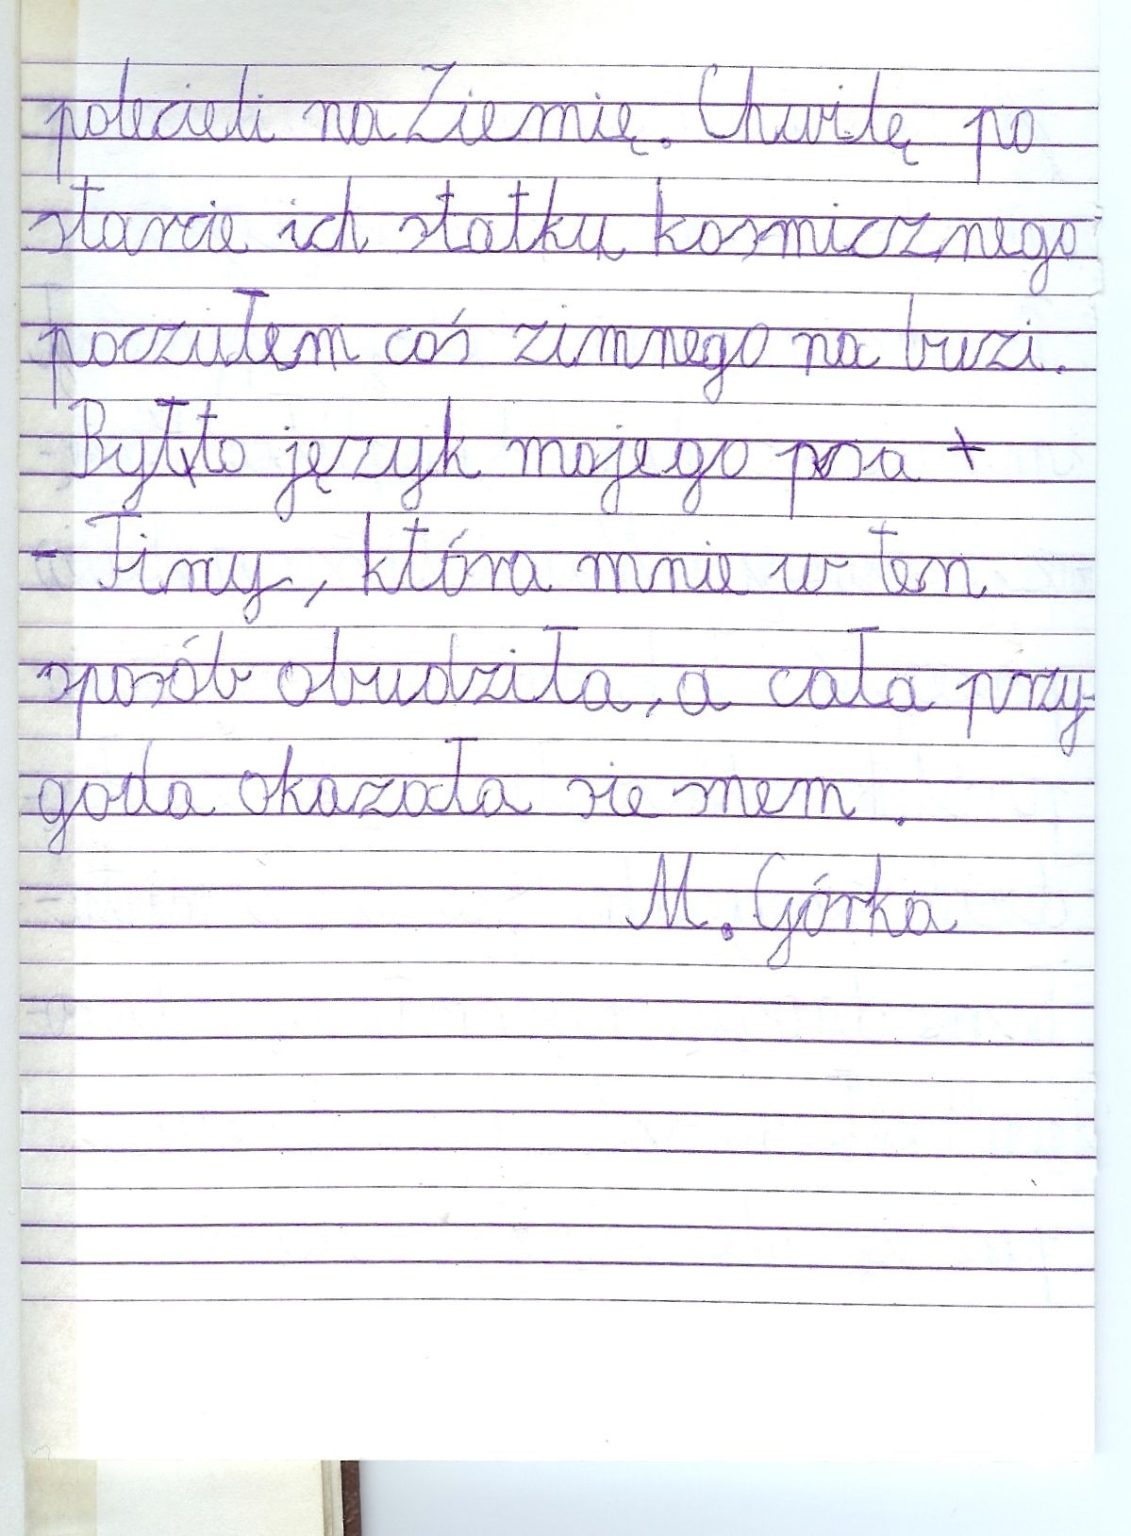 polecieli na Ziemię. Chwilę po
starcie ich statku kosmicznego
poczułem coś zimnego na buzi.
Był to język mojego psa +
- Finy, która mnie w ten
sposób obudziła, a cała przy-
goda okazała sie snem.
M. Górka